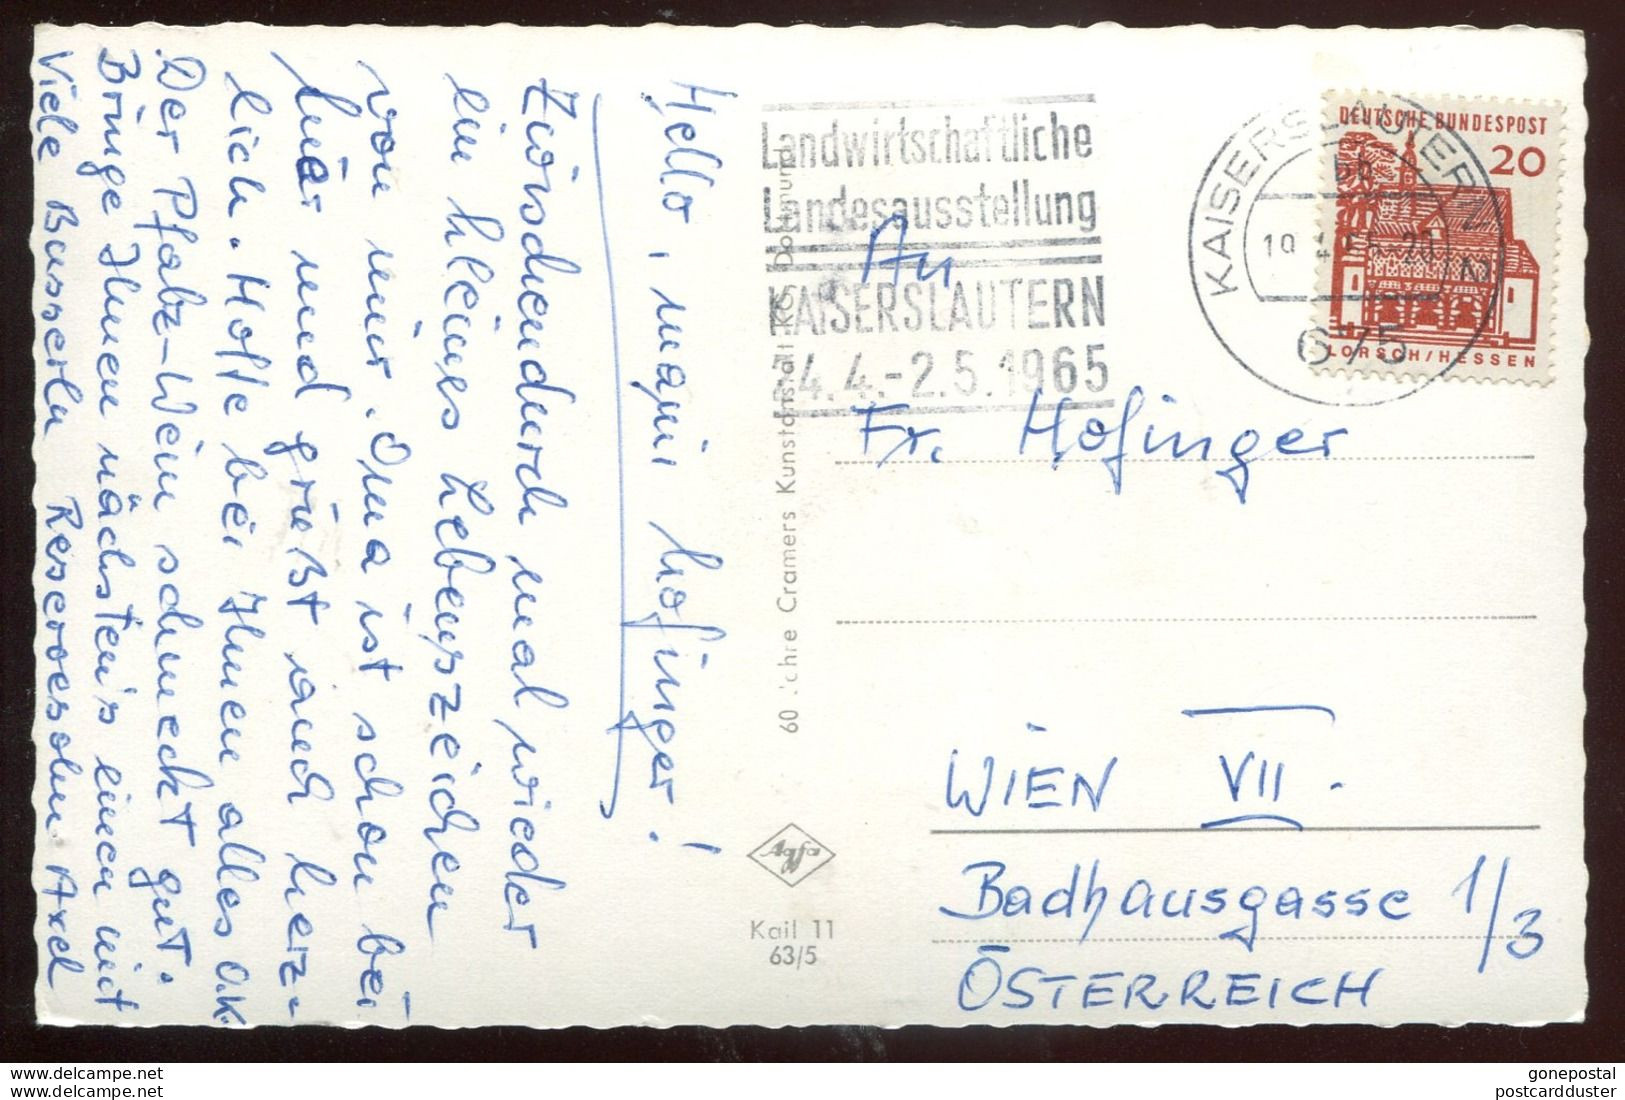 Hello, mami hofinger!
Zwischendurch mal wieder
ein kleines Lebenszeichen
von mir. Oma ist schon bei
hier und grüßt auch herz-
lich. Hoffe bei Ihnen alles o.k.
Der Pfalz-Wein schmeckt gut.
Bringe Ihnen nächsten's einen mit
Viele Busserln Reservesohn Axel
60 Jahre Cramers Kunstanstalt KG, Dortmund
Kail 11
63/5
Landwirtschaftliche
Landesausstellung
KAISERSLAUTERN
24.4.-2.5.1965
KAISERSLAUTERN
bb
675
DEUTSCHE BUNDESPOST
20
LORSCH/HESSEN
An
Fr. Hofinger
WIEN VII.
Badhausgasse 1/3
ÖSTERREICH
www.delcampe.net
www.delcampe.net
gonepostal
postcardduster